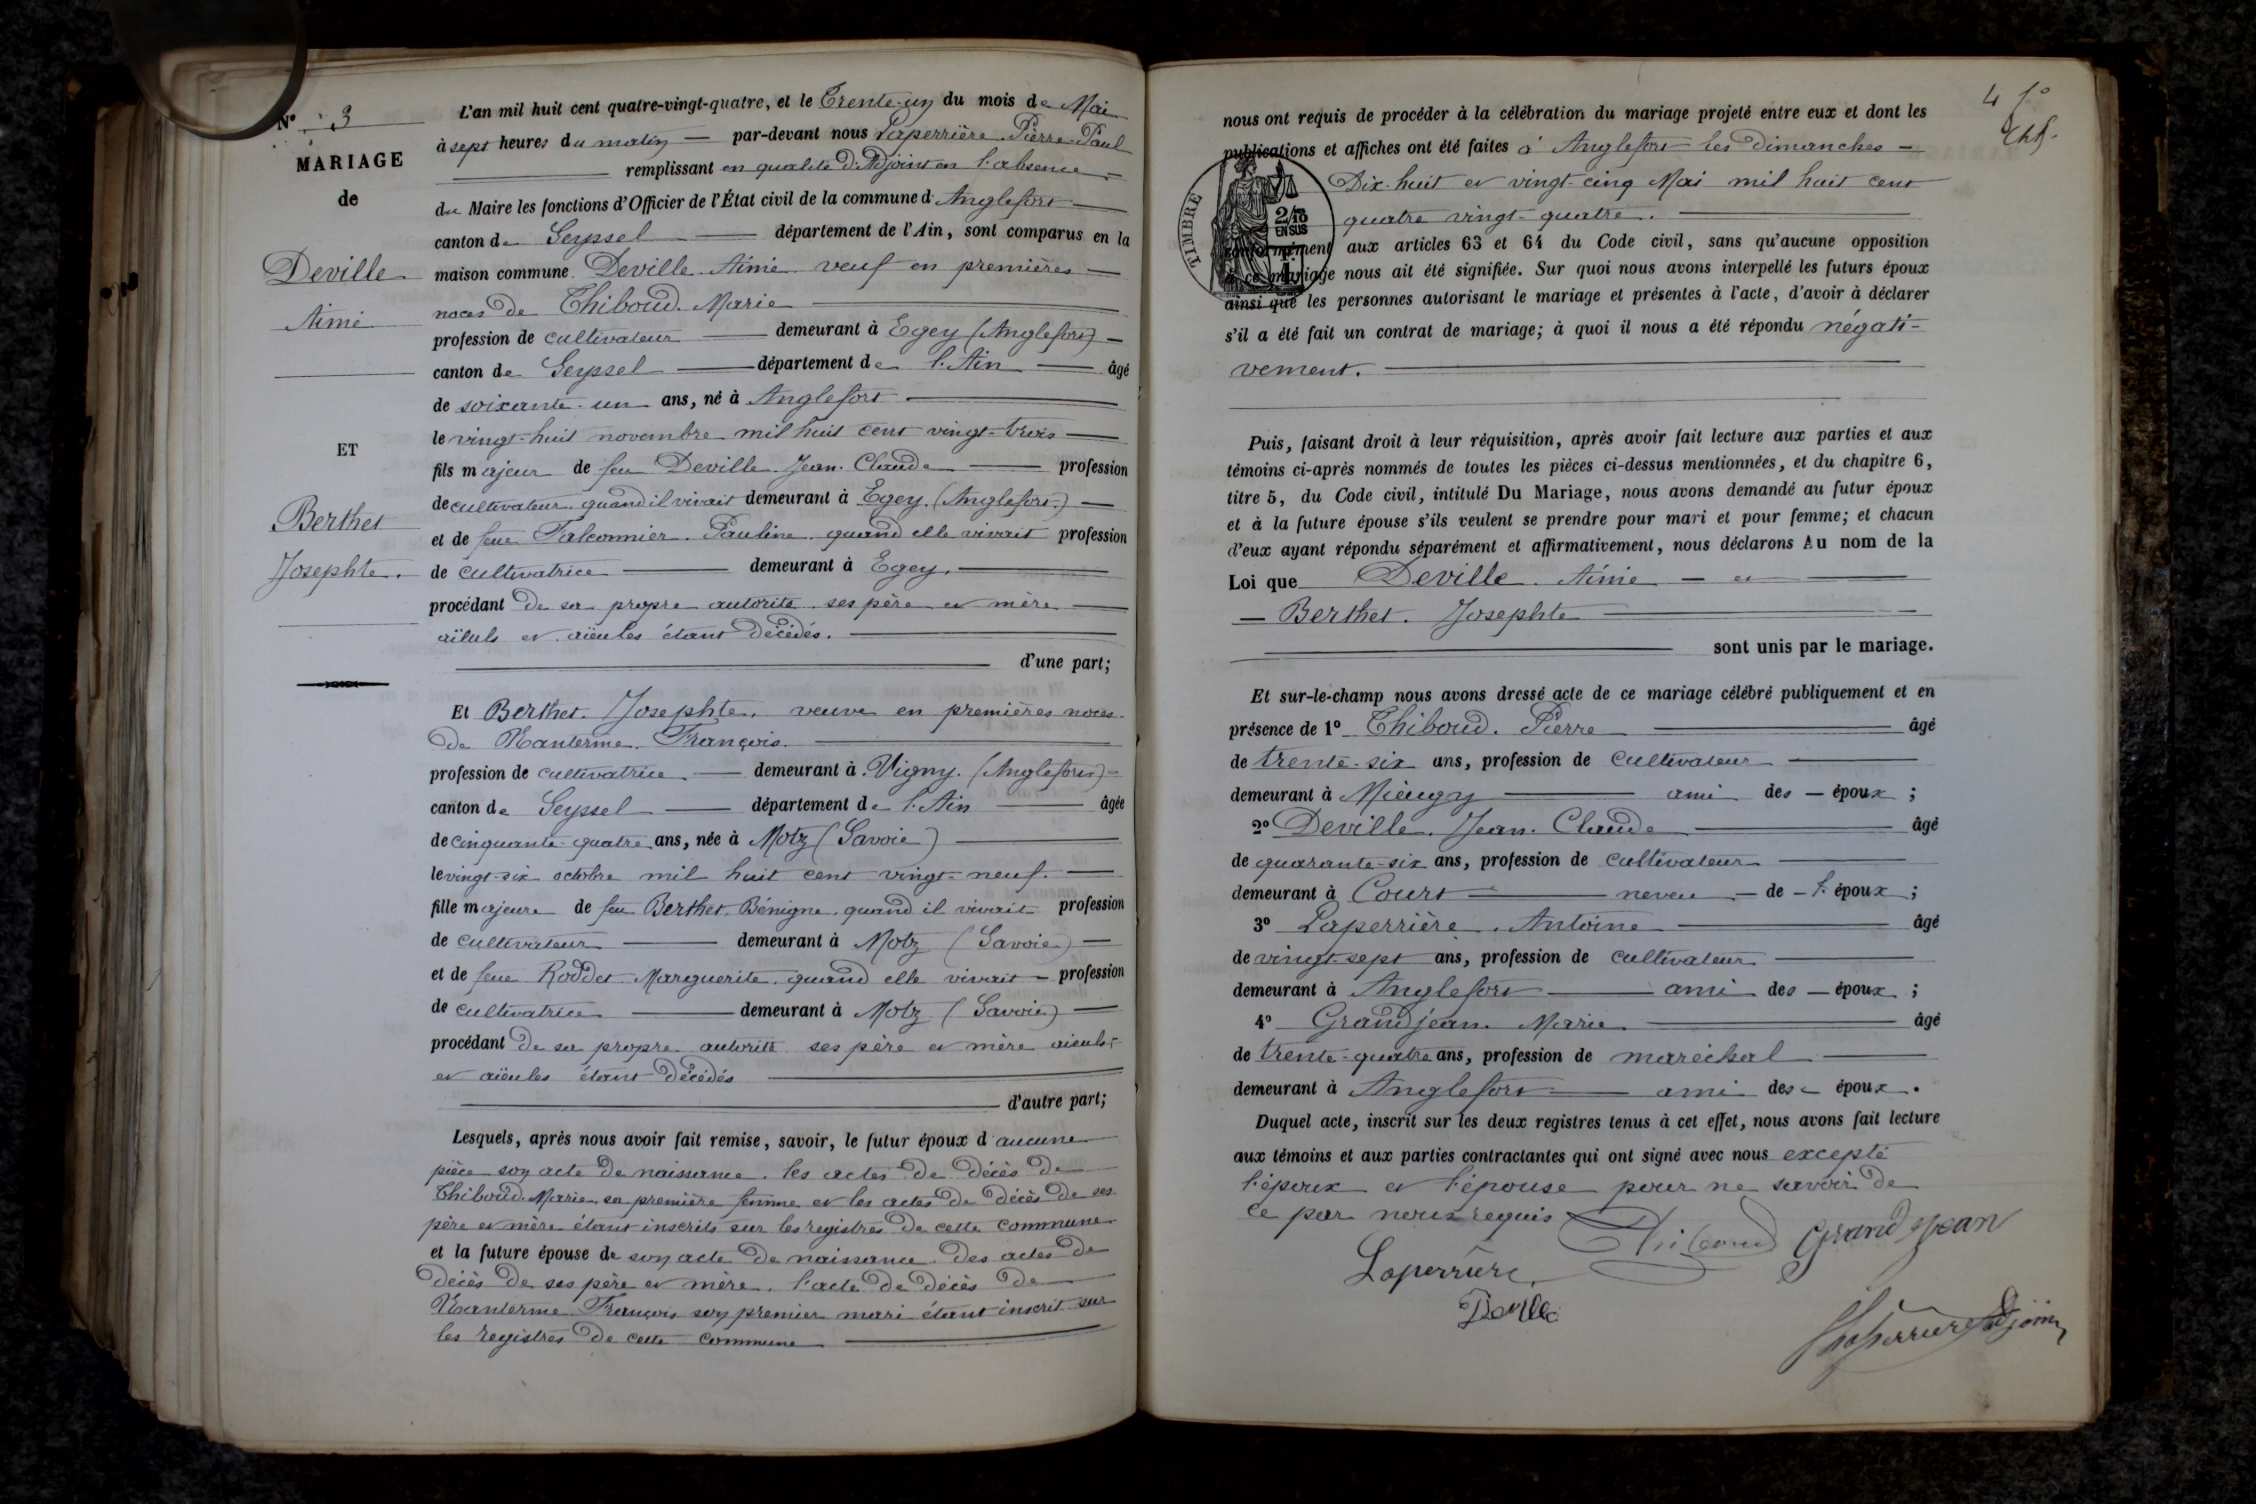 N° 3
MARIAGE
de
Deville
Aimé
ET
Berthet
Josephte.
L'an mil huit cent quatre-vingt-quatre, et le Trente-un du mois de Mai
à sept heures du matin — par-devant nous Laperrière Pierre Paul
remplissant en qualité d'Adjoint en l'absence
du Maire les fonctions d'Officier de l'État civil de la commune d'Anglefort
canton de Seyssel — département de l'Ain, sont comparus en la
maison commune Deville Aimé veuf en premières
noces de Thiboud Marie
profession de cultivateur — demeurant à Egey (Anglefort)
canton de Seyssel — département de l'Ain — âgé
de soixante-un ans, né à Anglefort
le vingt-huit novembre mil huit cent vingt-trois
fils majeur de feu Deville Jean-Claude — profession
de cultivateur quand il vivait demeurant à Egey (Anglefort)
et de feue Falconnier Pauline quand elle vivait profession
de cultivatrice — demeurant à Egey.
procédant de sa propre autorité ses père et mère
aïeuls et aïeules étant décédés.
d'une part;
Et Berthet Josephte, veuve en premières noces
de François.
profession de cultivatrice — demeurant à Vigny (Anglefort)
canton de Seyssel — département de l'Ain — âgée
de cinquante-quatre ans, née à Motz (Savoie)
le vingt-six octobre mil huit cent vingt-neuf.
fille majeure de feu Berthet Bénigne quand il vivait profession
de cultivateur — demeurant à Motz (Savoie)
et de feue Roddet Marguerite quand elle vivait — profession
de cultivatrice — demeurant à Motz (Savoie)
procédant de sa propre autorité ses père et mère aieuls
et aïeules étant décédés
d'autre part;
Lesquels, après nous avoir fait remise, savoir, le futur époux d'aucune
pièce son acte de naissance, les actes de décès de
Thiboud Marie sa première femme et les actes de décès de ses
père et mère étant inscrits sur les registres de cette commune
et la future épouse de son acte de naissance des actes de
décès de ses père et mère, l'acte de décès de
François son premier mari étant inscrit sur
les registres de cette commune
4 f°
nous ont requis de procéder à la célébration du mariage projeté entre eux et dont les
publications et affiches ont été faites à Anglefort les dimanches —
Dix-huit et vingt-cinq Mai mil huit cent
quatre vingt-quatre.
TIMBRE
2/10
EN SUS
conformément aux articles 63 et 64 du Code civil, sans qu'aucune opposition
à ce mariage nous ait été signifiée. Sur quoi nous avons interpellé les futurs époux
ainsi que les personnes autorisant le mariage et présentes à l'acte, d'avoir à déclarer
s'il a été fait un contrat de mariage; à quoi il nous a été répondu négati-
vement.
Puis, faisant droit à leur réquisition, après avoir fait lecture aux parties et aux
témoins ci-après nommés de toutes les pièces ci-dessus mentionnées, et du chapitre 6,
titre 5, du Code civil, intitulé Du Mariage, nous avons demandé au futur époux
et à la future épouse s'ils veulent se prendre pour mari et pour femme; et chacun
d'eux ayant répondu séparément et affirmativement, nous déclarons Au nom de la
Loi que Deville Aimé — et
— Berthet Josephte
sont unis par le mariage.
Et sur-le-champ nous avons dressé acte de ce mariage célébré publiquement et en
présence de 1° Thiboud Pierre — âgé
de trente-six ans, profession de cultivateur
demeurant à Mieugy — ami des — époux;
2° Deville Jean-Claude — âgé
de quarante-six ans, profession de cultivateur
demeurant à Court — neveu — de — l'époux;
3° Laperrière Antoine — âgé
de vingt-sept ans, profession de cultivateur
demeurant à Anglefort — ami des — époux;
4° Grandjean Marie — âgé
de trente-quatre ans, profession de maréchal
demeurant à Anglefort — ami des — époux.
Duquel acte, inscrit sur les deux registres tenus à cet effet, nous avons fait lecture
aux témoins et aux parties contractantes qui ont signé avec nous excepté
l'époux et l'épouse pour ne savoir de
ce par nous requis
Thiboud Grandjean
Laperrière
Deville
Laperrière Adjoint